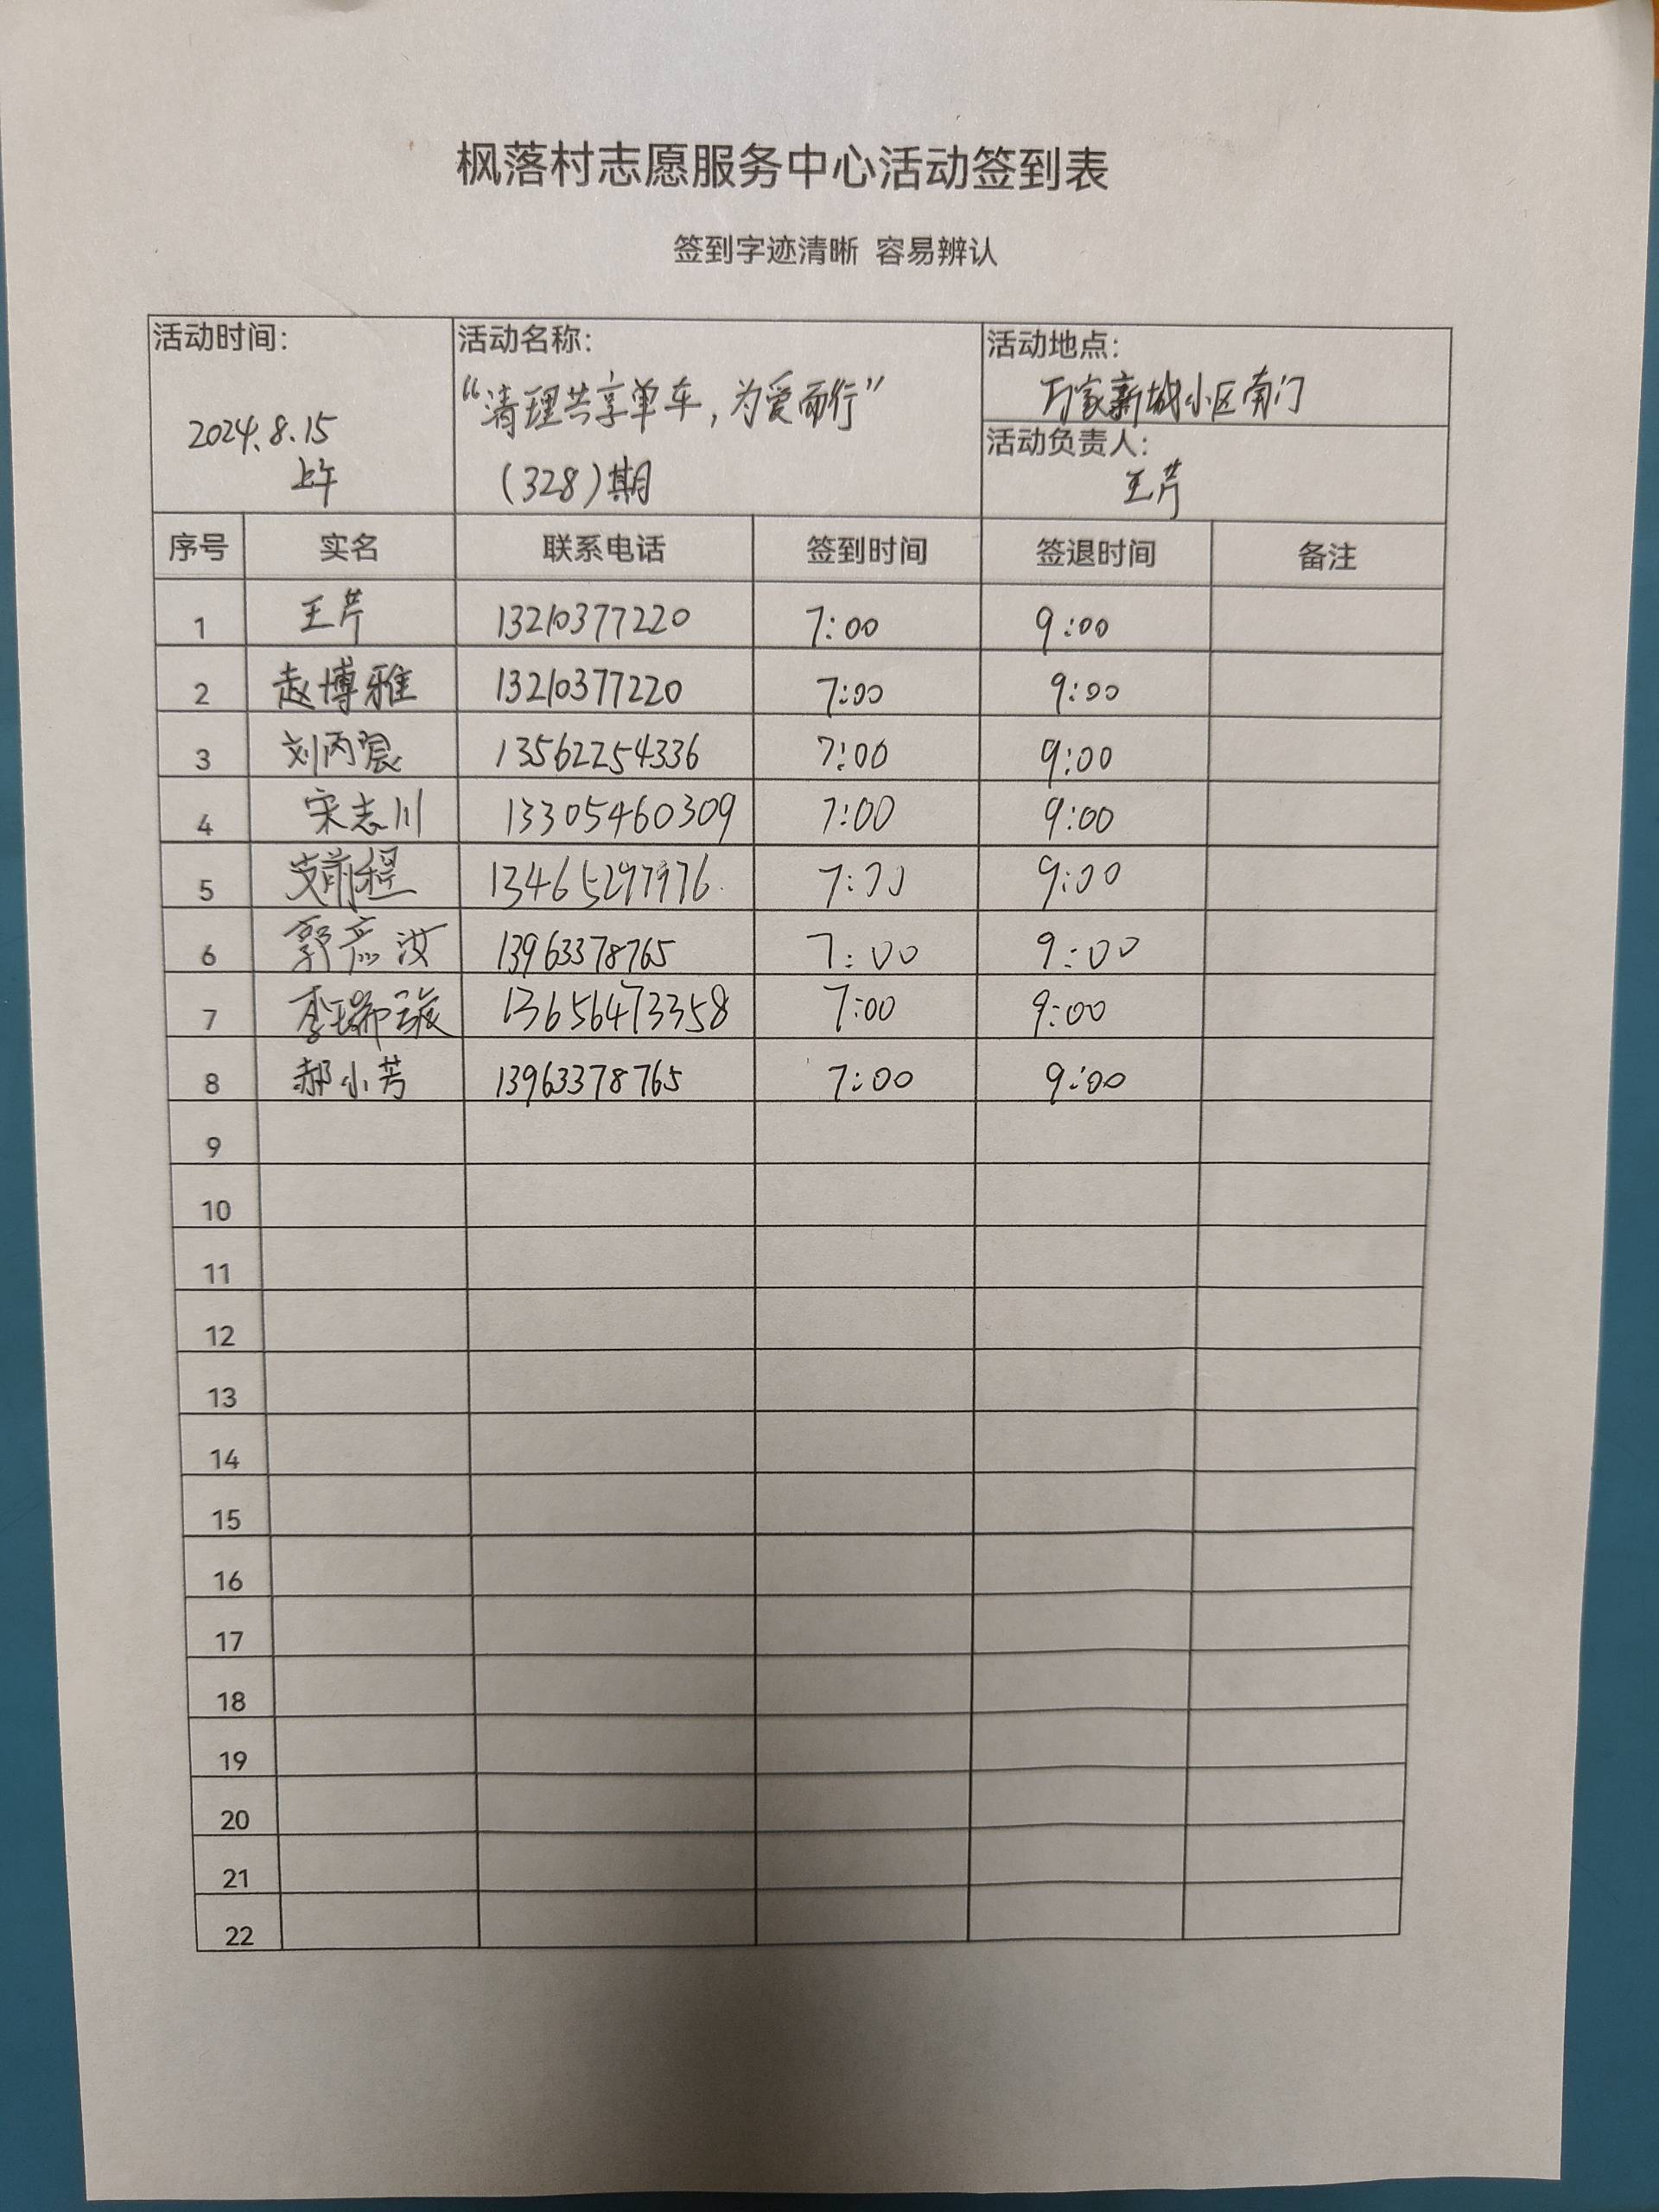 枫落村志愿服务中心活动签到表
签到字迹清晰 容易辨认
活动时间: 2024.8.15 上午
活动名称: “清理共享单车，为爱而行” (328)期
活动地点: 万家新城小区南门
活动负责人: 王芹
序号 实名 联系电话 签到时间 签退时间 备注
1 王芹 13210377220 7:00 9:00
2 赵博雅 13210377220 7:00 9:00
3 刘丙晨 13562254336 7:00 9:00
4 宋志川 13305460309 7:00 9:00
5 支前程 13465297976 7:00 9:00
6 郭彦汝 13963378765 7:00 9:00
7 李瑞璇 13656473358 7:00 9:00
8 郝小芳 13963378765 7:00 9:00
9
10
11
12
13
14
15
16
17
18
19
20
21
22